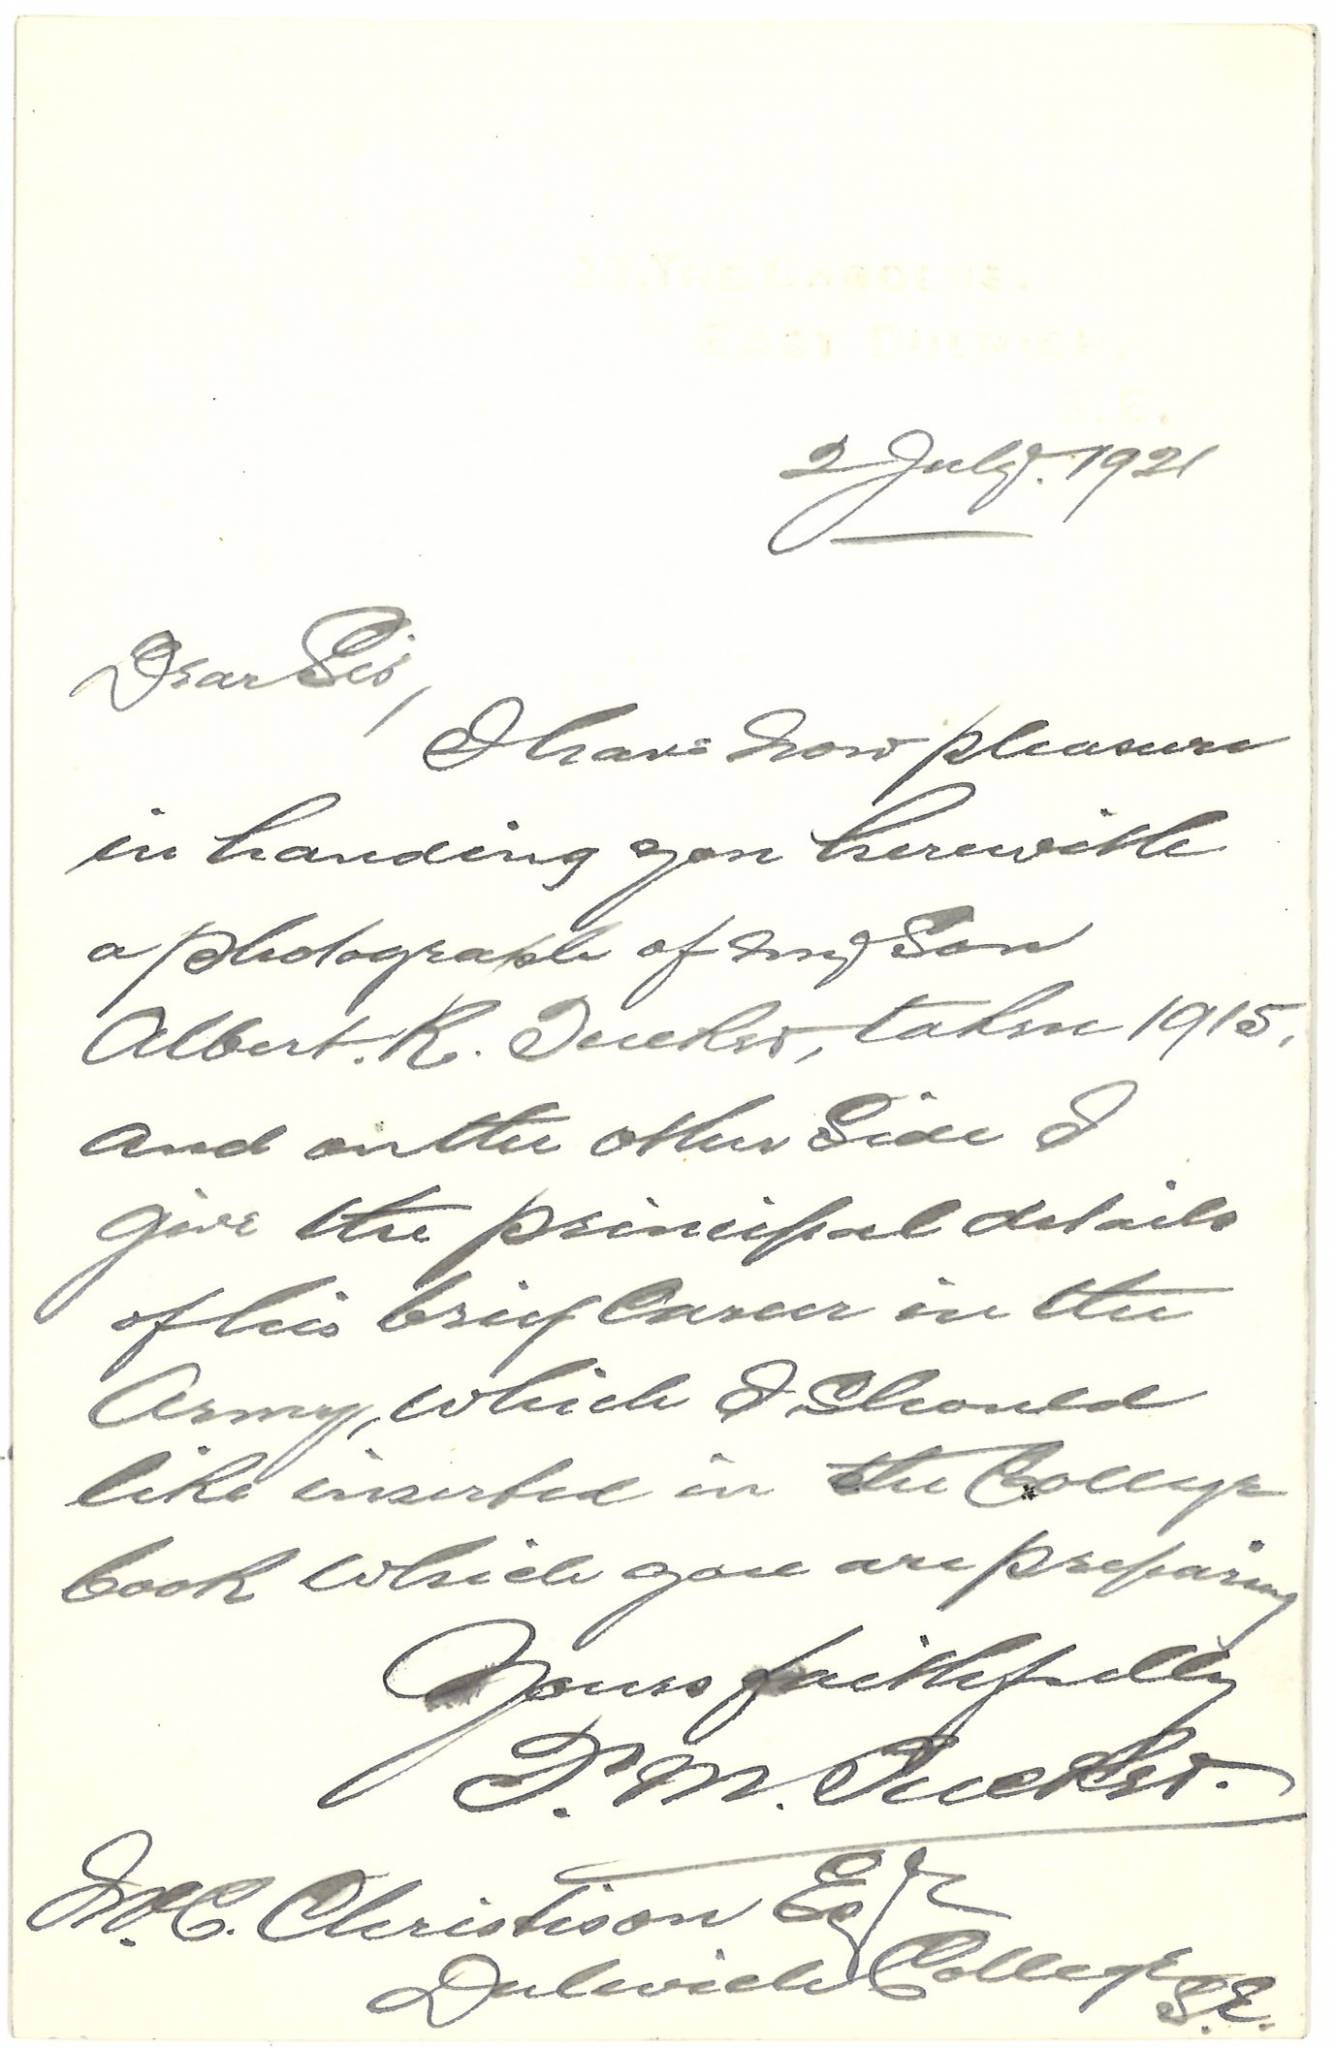 THE GARDENS.
EAST DULWICH,
S.E.
2 July. 1921
Dear Sir,
I have now pleasure
in handing you herewith
a photograph of my Son
Albert. R. Tucker, taken 1915,
and on the other Side I
give the principal details
of his brief Career in the
Army, which I Should
like inserted in the College
book which you are preparing
Yours faithfully
T. M. Tucker.
C. Christison Esqr
Dulwich College
S.E.